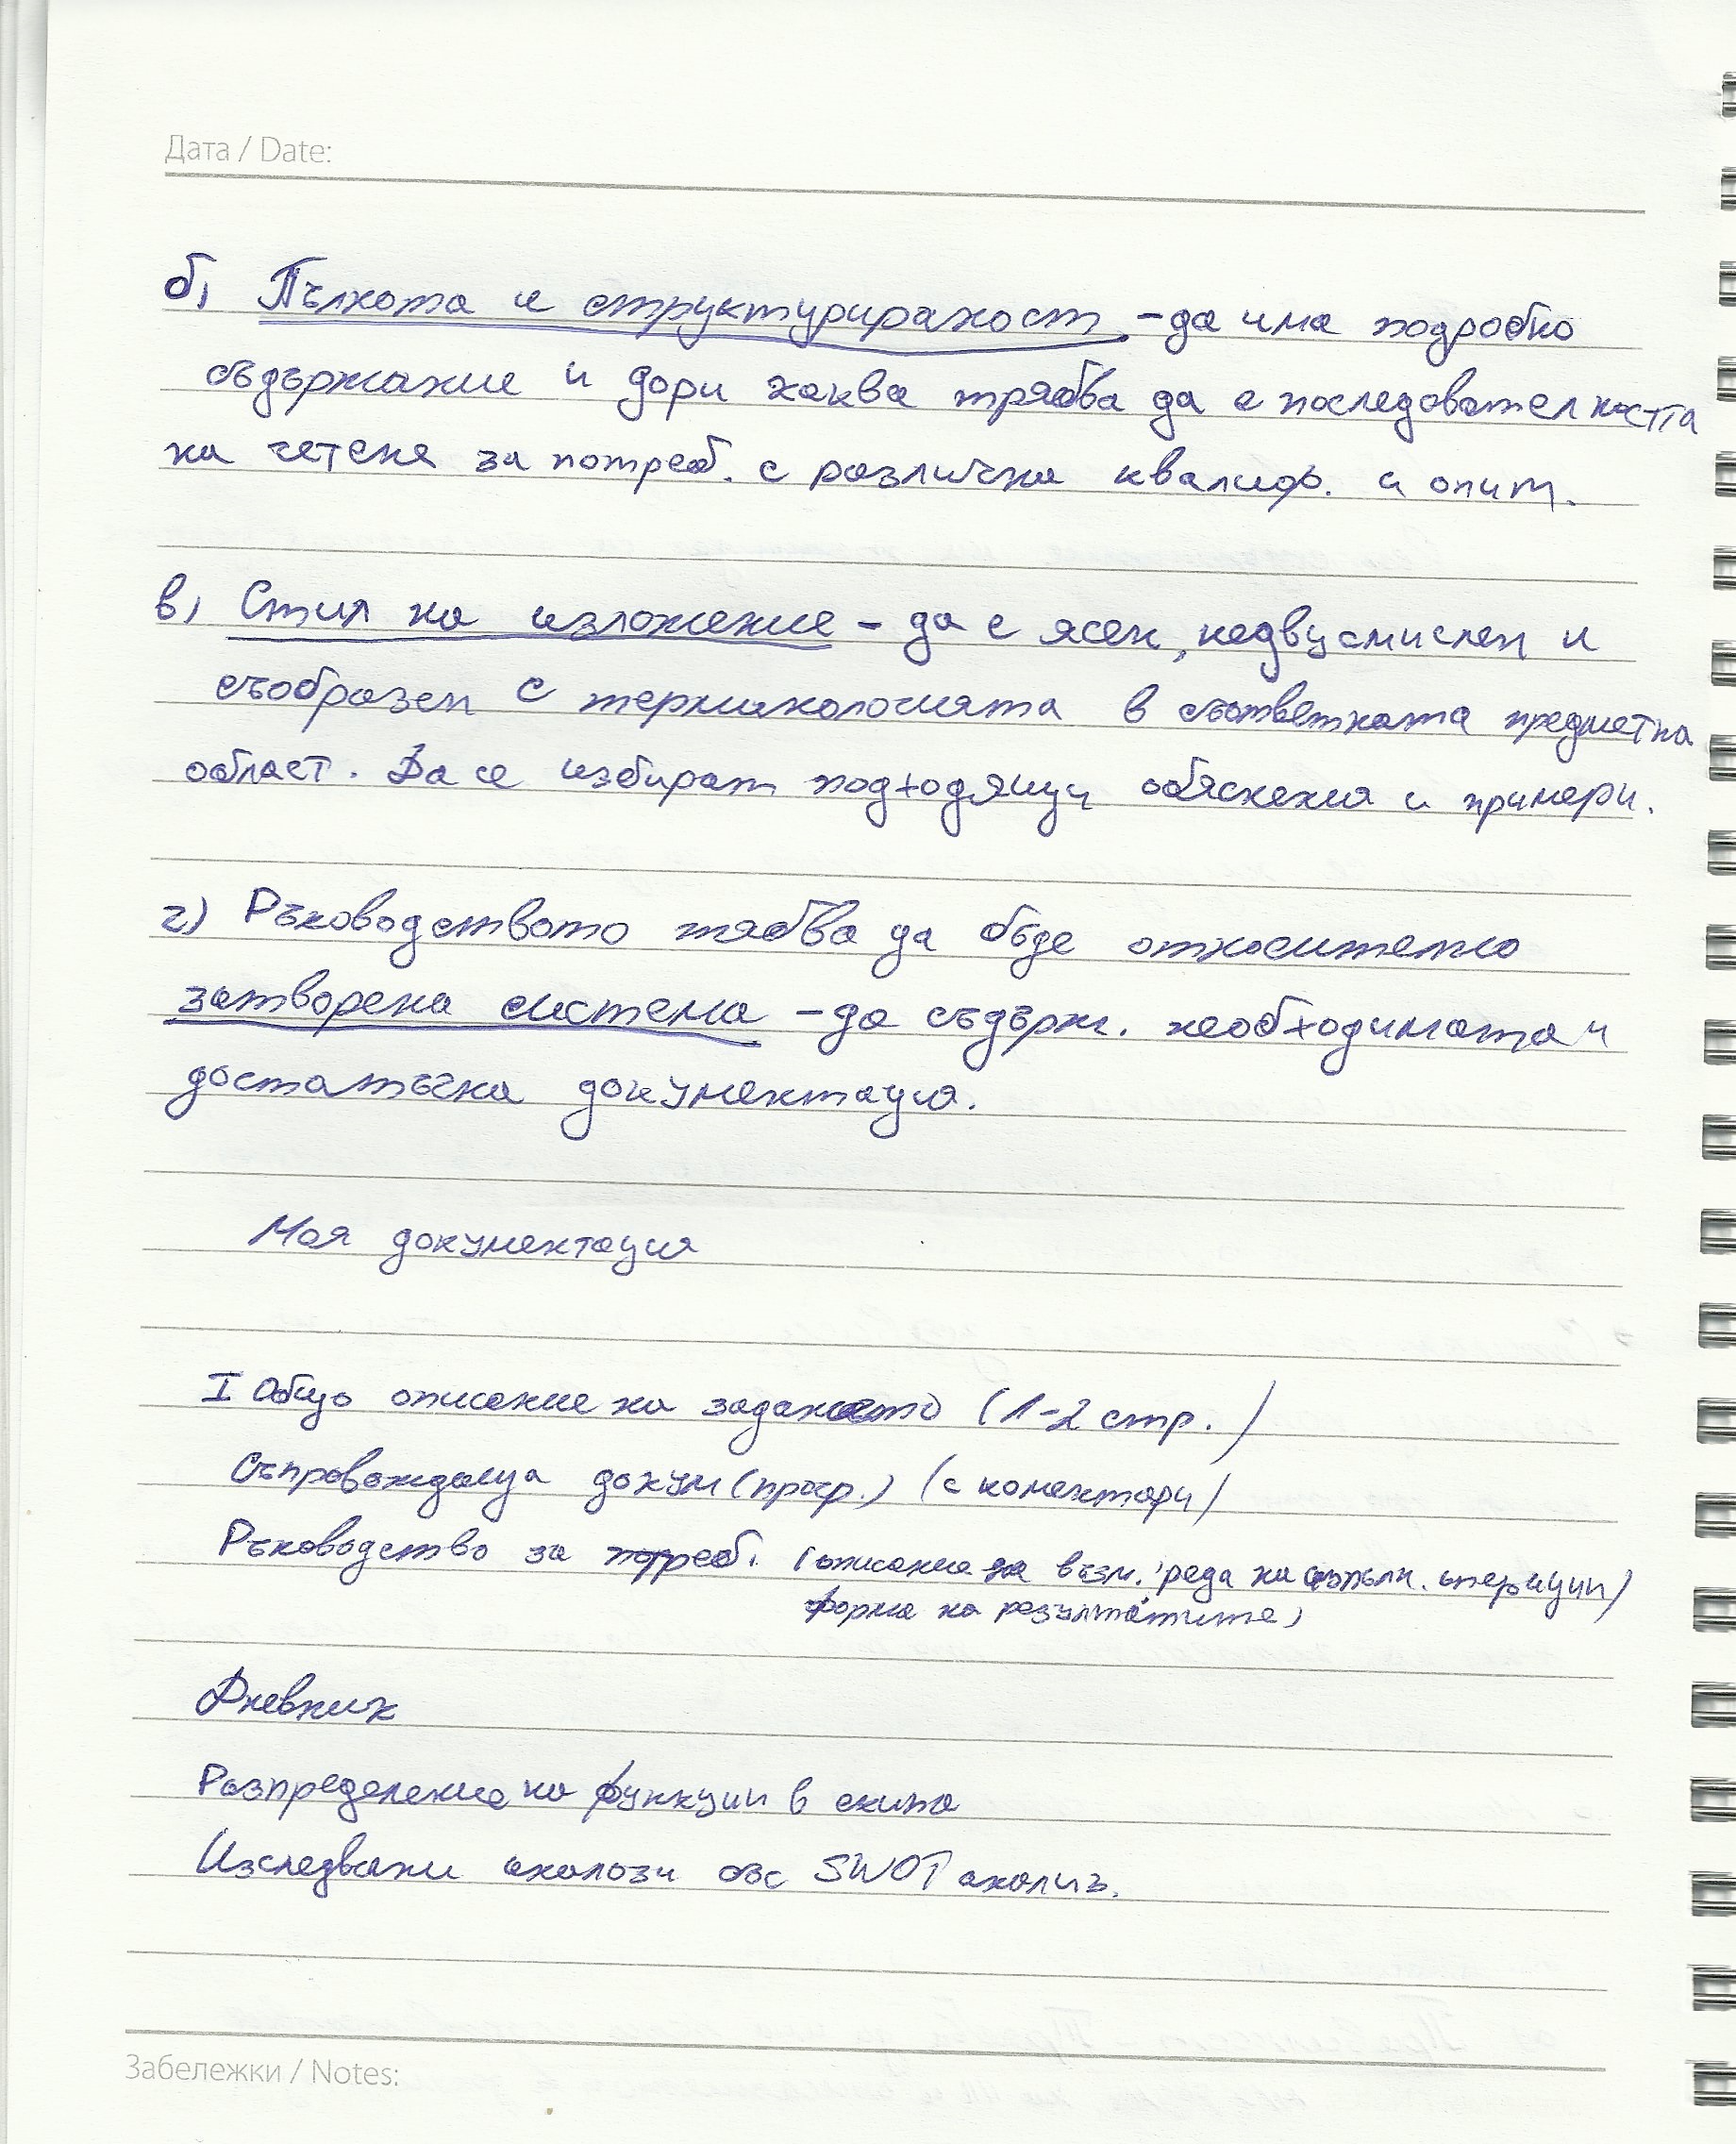 Дата / Date:
б) Пълнота и структурираност - да има подробно
съдържание и дори каква трябва да е последователността
на четене за потреб. с различна квалиф. и опит.
в) Стил на изложение - да е ясен, недвусмислен и
съобразен с терминологията в съответната предметна
област. Да се избират подходящи обяснения и примери.
г) Ръководството тябва да бъде относително
затворена система - да съдърж. необходимата и
достатъчна документация.
Моя документация
I Общо описание на заданието (1-2 стр.)
Съпровождаща докум (прогр.) (с коментари)
Ръководство за потреб. (описание на възм. реда на изпълн. операции)
форма на резултатите)
Дневник
Разпределение на функции в екипа
Изследвани аналози SWOT анализ.
Забележки / Notes: